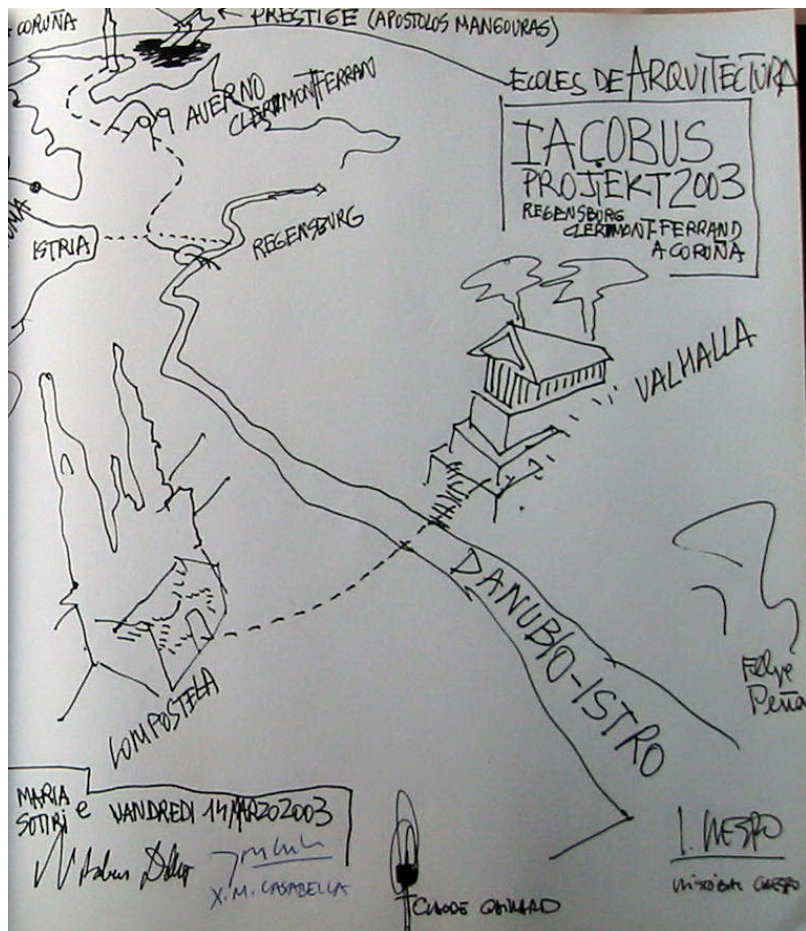 A CORUÑA
PRESTIGE (APOSTOLOS MANGOURAS)
ECOLES DE ARQUITECTURA
AVERNO
CLERMONT-FERRAN
IACOBUS
PROJEKT 2003
REGENSBURG
CLERMONT-FERRAND
A CORUÑA
ISTRIA
REGENSBURG
VALHALLA
DANUBIO-ISTRO
COMPOSTELA
Felipe
Peña
MARIA
SOTIRI e VANDREDI 14 MARZO 2003
X. M. CASABELLA
CLAUDE